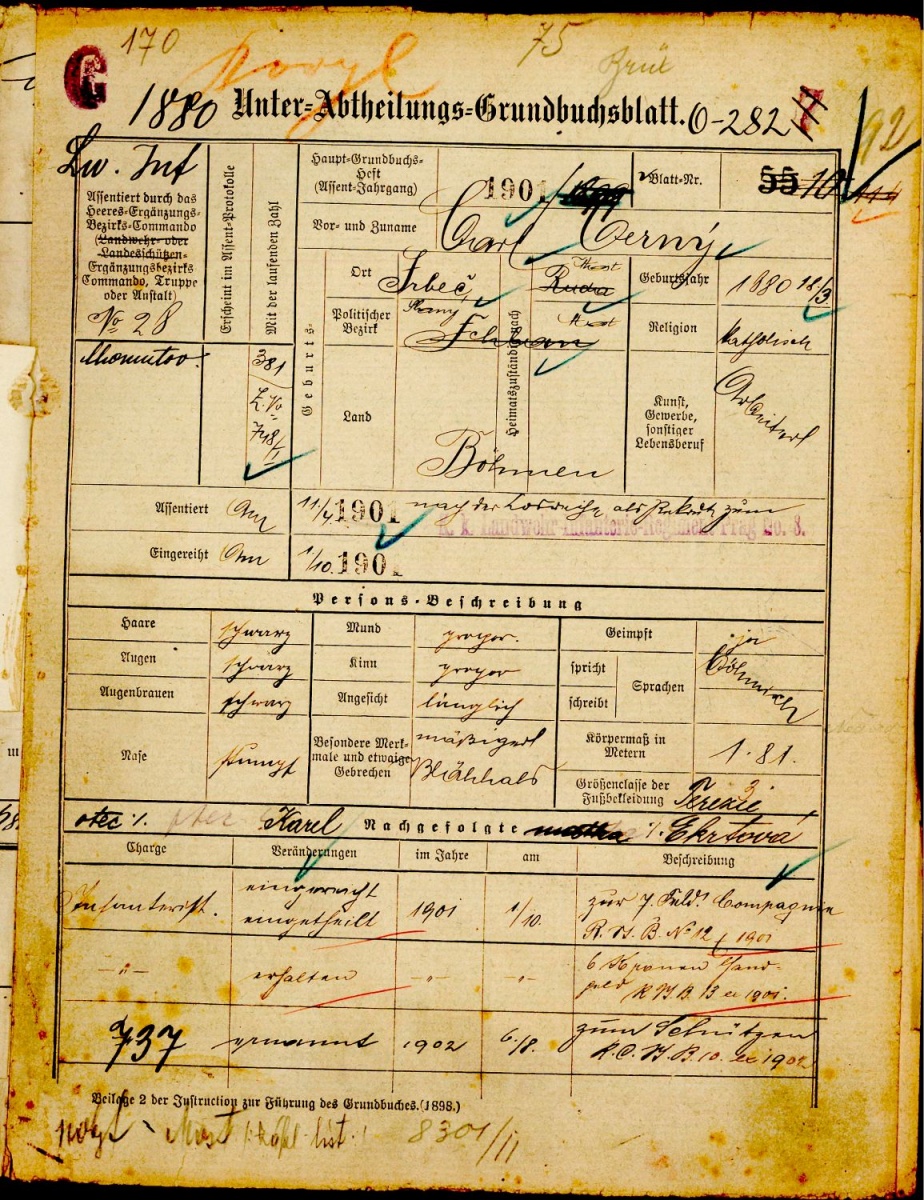 170
75
G
1880 Unter-Abtheilungs-Grundbuchsblatt. O-282
92
Lw. Inf
Assentiert durch das
Heeres-Ergänzungs-
Bezirks-Commando
(Landwehr- oder
Landesschützen-
Ergänzungsbezirks
Commando, Truppe
oder Anstalt)
No 28
Chomutov
Erscheint im Assent-Protokolle
Mit der laufenden Zahl
381
Haupt-Grundbuchs-
Heft
(Assent-Jahrgang)
1901
Blatt-Nr.
55
Vor- und Zuname
Carl Černý
Geburts-
Ort
Srbeč
Heimatszuständig nach
Ruda
Most
Geburtsjahr
1880 18/3
Politischer
Bezirk
Most
Religion
katholisch
Land
Böhmen
Kunst,
Gewerbe,
sonstiger
Lebensberuf
Arbeiter
Assentiert Am 11/4 1901 nach der Losreihe als Rekrut zum
K. k. Landwehr-Infanterie-Regiment Prag No. 8.
Eingereiht Am 1/10. 1901
Persons-Beschreibung
Haare schwarz
Mund propor.
Geimpft ja
Augen schwarz
Kinn propor
spricht
schreibt
Sprachen
böhmisch
Augenbrauen schwarz
Angesicht länglich
Nase stumpf
Besondere Merk-
male und etwaige
Gebrechen
mäßiger
Blähhals
Körpermaß in
Metern
1·81.
Größenclasse der
Fußbekleidung
3
Terezie
otec /. Karel Nachgefolgte matka /. Ekrtová
Charge
Veränderungen
im Jahre
am
Beschreibung
Infanterist.
eingereicht
eingetheilt
1901
1/10.
zur 7. Feld. Compagnie
R. H. B. No 12 / 1901
-"-
erhalten
-"-
-"-
6 Kronen Hand-
geld
B. 13 ex 1901.
737
genannt
1902
6/8.
zum Schützen
B. 10. ex 1902
Beilage 2 der Instruction zur Führung des Grundbuches. (1898.)
Most
list.
8301/II